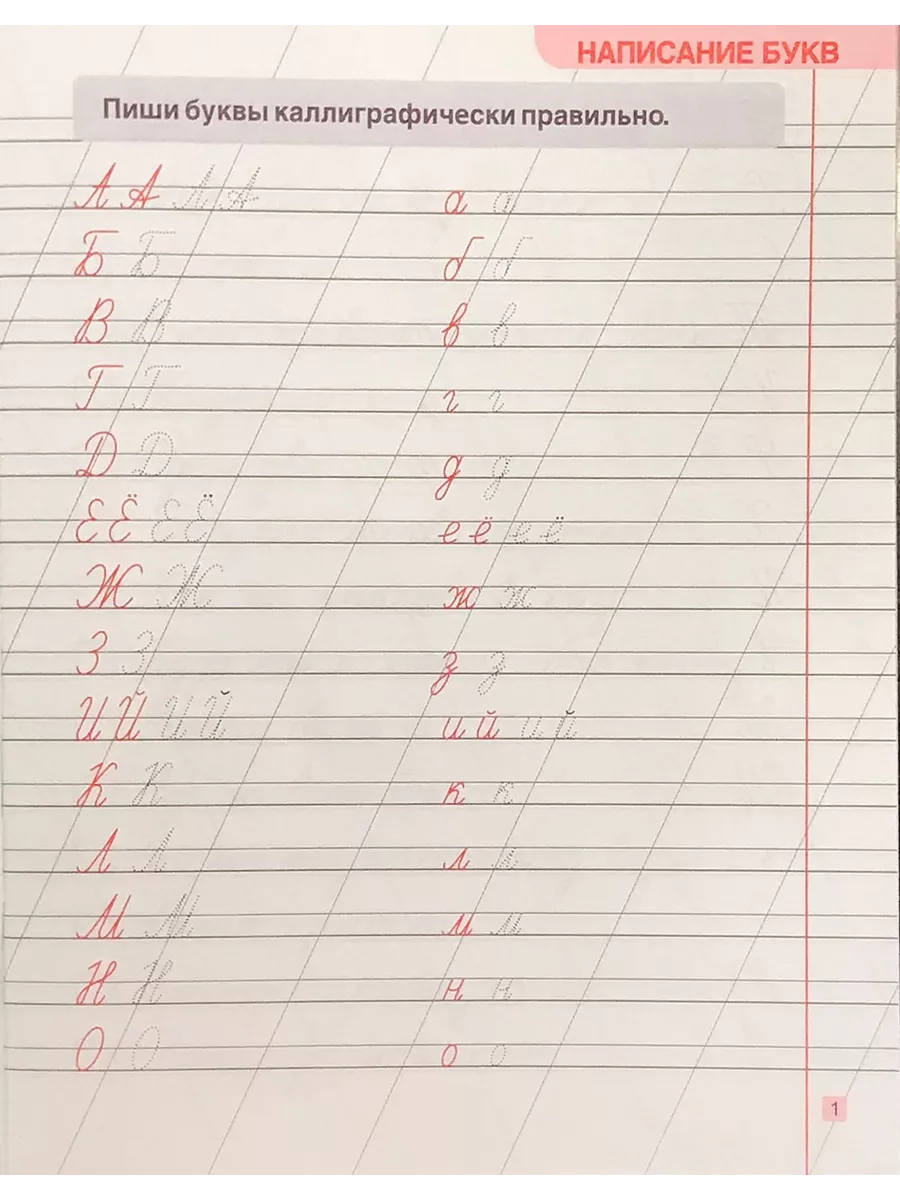 НАПИСАНИЕ БУКВ
Пиши буквы каллиграфически правильно.
А А А А а а
Б Б б б
В В в в
Г Г г г
Д Д д д
Е Ё Е Ё е ё е ё
Ж Ж ж ж
З З з з
И Й И Й и й и й
К К к к
Л Л л л
М М м м
Н Н н н
О О о о
1